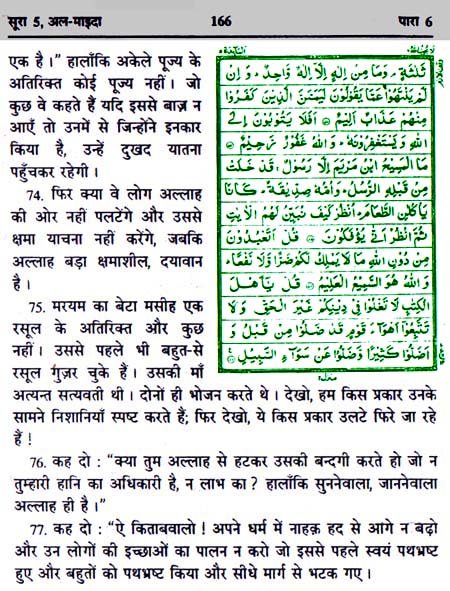 सूरा 5, अल-माइदा 166 पारा 6
एक है।” हालाँकि अकेले पूज्य के
अतिरिक्त कोई पूज्य नहीं। जो
कुछ वे कहते हैं यदि इससे बाज़ न
आएँ तो उनमें से जिन्होंने इनकार
किया है, उन्हें दुखद यातना
पहुँचकर रहेगी।
74. फिर क्या वे लोग अल्लाह
की ओर नहीं पलटेंगे और उससे
क्षमा याचना नहीं करेंगे, जबकि
अल्लाह बड़ा क्षमाशील, दयावान
है।
75. मरयम का बेटा मसीह एक
रसूल के अतिरिक्त और कुछ
नहीं। उससे पहले भी बहुत-से
रसूल गुज़र चुके हैं। उसकी माँ
अत्यन्त सत्यवती थी। दोनों ही भोजन करते थे। देखो, हम किस प्रकार उनके
सामने निशानियाँ स्पष्ट करते हैं; फिर देखो, ये किस प्रकार उलटे फिरे जा रहे
हैं!
76. कह दो : “क्या तुम अल्लाह से हटकर उसकी बन्दगी करते हो जो न
तुम्हारी हानि का अधिकारी है, न लाभ का? हालाँकि सुननेवाला, जाननेवाला
अल्लाह ही है।”
77. कह दो : “ऐ किताबवालो! अपने धर्म में नाहक़ हद से आगे न बढ़ो
और उन लोगों की इच्छाओं का पालन न करो जो इससे पहले स्वयं पथभ्रष्ट
हुए और बहुतों को पथभ्रष्ट किया और सीधे मार्ग से भटक गए।
ثَلٰثَةٍ وَمَا مِنْ اِلٰهٍ اِلَّا اِلٰهٌ وَّاحِدٌ وَاِنْ
لَّمْ يَنْتَهُوْا عَمَّا يَقُوْلُوْنَ لَيَمَسَّنَّ الَّذِيْنَ كَفَرُوْا
مِنْهُمْ عَذَابٌ اَلِيْمٌ اَفَلَا يَتُوْبُوْنَ اِلَى
اللّٰهِ وَيَسْتَغْفِرُوْنَهٗ وَاللّٰهُ غَفُوْرٌ رَّحِيْمٌ
مَا الْمَسِيْحُ ابْنُ مَرْيَمَ اِلَّا رَسُوْلٌ قَدْ خَلَتْ
مِنْ قَبْلِهِ الرُّسُلُ وَاُمُّهٗ صِدِّيْقَةٌ كَانَا
يَاْكُلٰنِ الطَّعَامَ اُنْظُرْ كَيْفَ نُبَيِّنُ لَهُمُ الْاٰيٰتِ
ثُمَّ انْظُرْ اَنّٰى يُؤْفَكُوْنَ قُلْ اَتَعْبُدُوْنَ
مِنْ دُوْنِ اللّٰهِ مَا لَا يَمْلِكُ لَكُمْ ضَرًّا وَّلَا نَفْعًا
وَاللّٰهُ هُوَ السَّمِيْعُ الْعَلِيْمُ قُلْ يٰۤاَهْلَ
الْكِتٰبِ لَا تَغْلُوْا فِيْ دِيْنِكُمْ غَيْرَ الْحَقِّ وَلَا
تَتَّبِعُوْۤا اَهْوَآءَ قَوْمٍ قَدْ ضَلُّوْا مِنْ قَبْلُ وَ
اَضَلُّوْا كَثِيْرًا وَّضَلُّوْا عَنْ سَوَآءِ السَّبِيْلِ